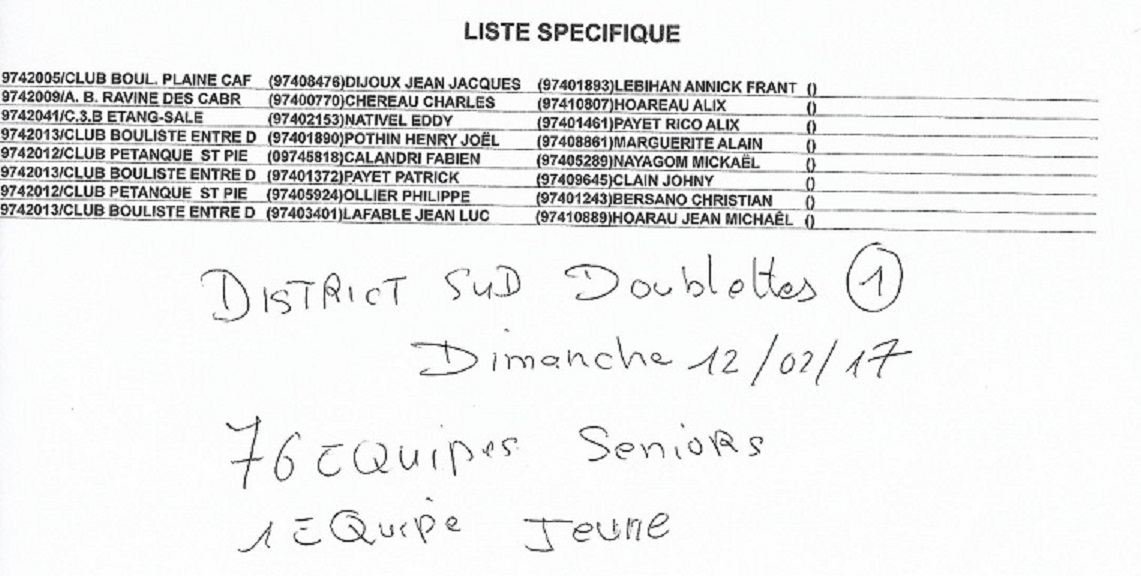 LISTE SPECIFIQUE
9742005/CLUB BOUL. PLAINE CAF (97408476)DIJOUX JEAN JACQUES (97401893)LEBIHAN ANNICK FRANT ()
9742009/A. B. RAVINE DES CABR (97400770)CHEREAU CHARLES (97410807)HOAREAU ALIX ()
9742041/C.3.B ETANG-SALE (97402153)NATIVEL EDDY (97401461)PAYET RICO ALIX ()
9742013/CLUB BOULISTE ENTRE D (97401890)POTHIN HENRY JOËL (97408861)MARGUERITE ALAIN ()
9742012/CLUB PETANQUE ST PIE (09745818)CALANDRI FABIEN (97405289)NAYAGOM MICKAËL ()
9742013/CLUB BOULISTE ENTRE D (97401372)PAYET PATRICK (97409645)CLAIN JOHNY ()
9742012/CLUB PETANQUE ST PIE (97405924)OLLIER PHILIPPE (97401243)BERSANO CHRISTIAN ()
9742013/CLUB BOULISTE ENTRE D (97403401)LAFABLE JEAN LUC (97410889)HOARAU JEAN MICHAËL ()
DISTRICT SUD Doublettes 1
Dimanche 12/02/17
76 EQuipes Seniors
1 EQuipe Jeune